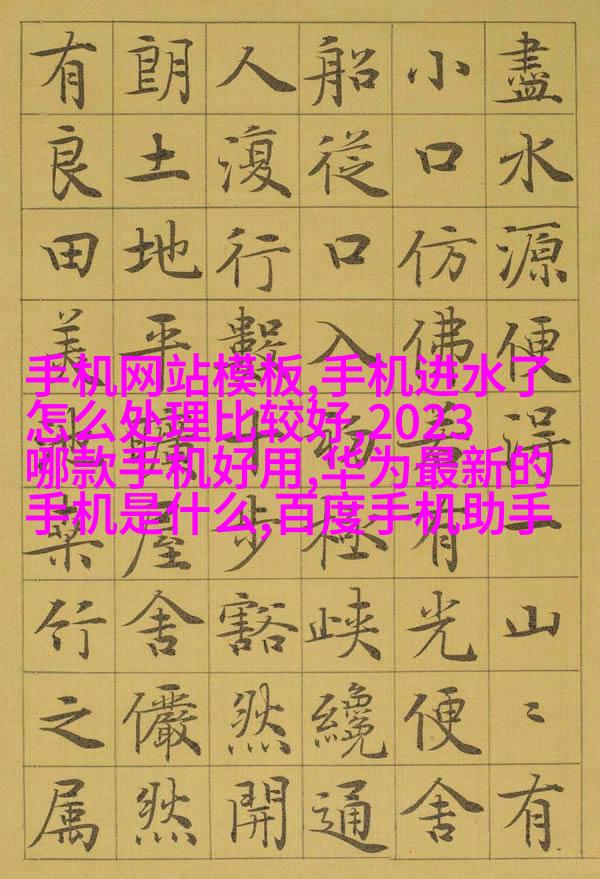 盡水源便得一山〻有
小口仿佛若有光便舍
船從口入初極峽纔通
人復行數十步豁然開
朗土地平曠屋舍儼然
有良田美池桑竹之属
手机网站模板,手机进水了
怎么处理比较好,2023
哪款手机好用,华为最新的
手机是什么,百度手机助手